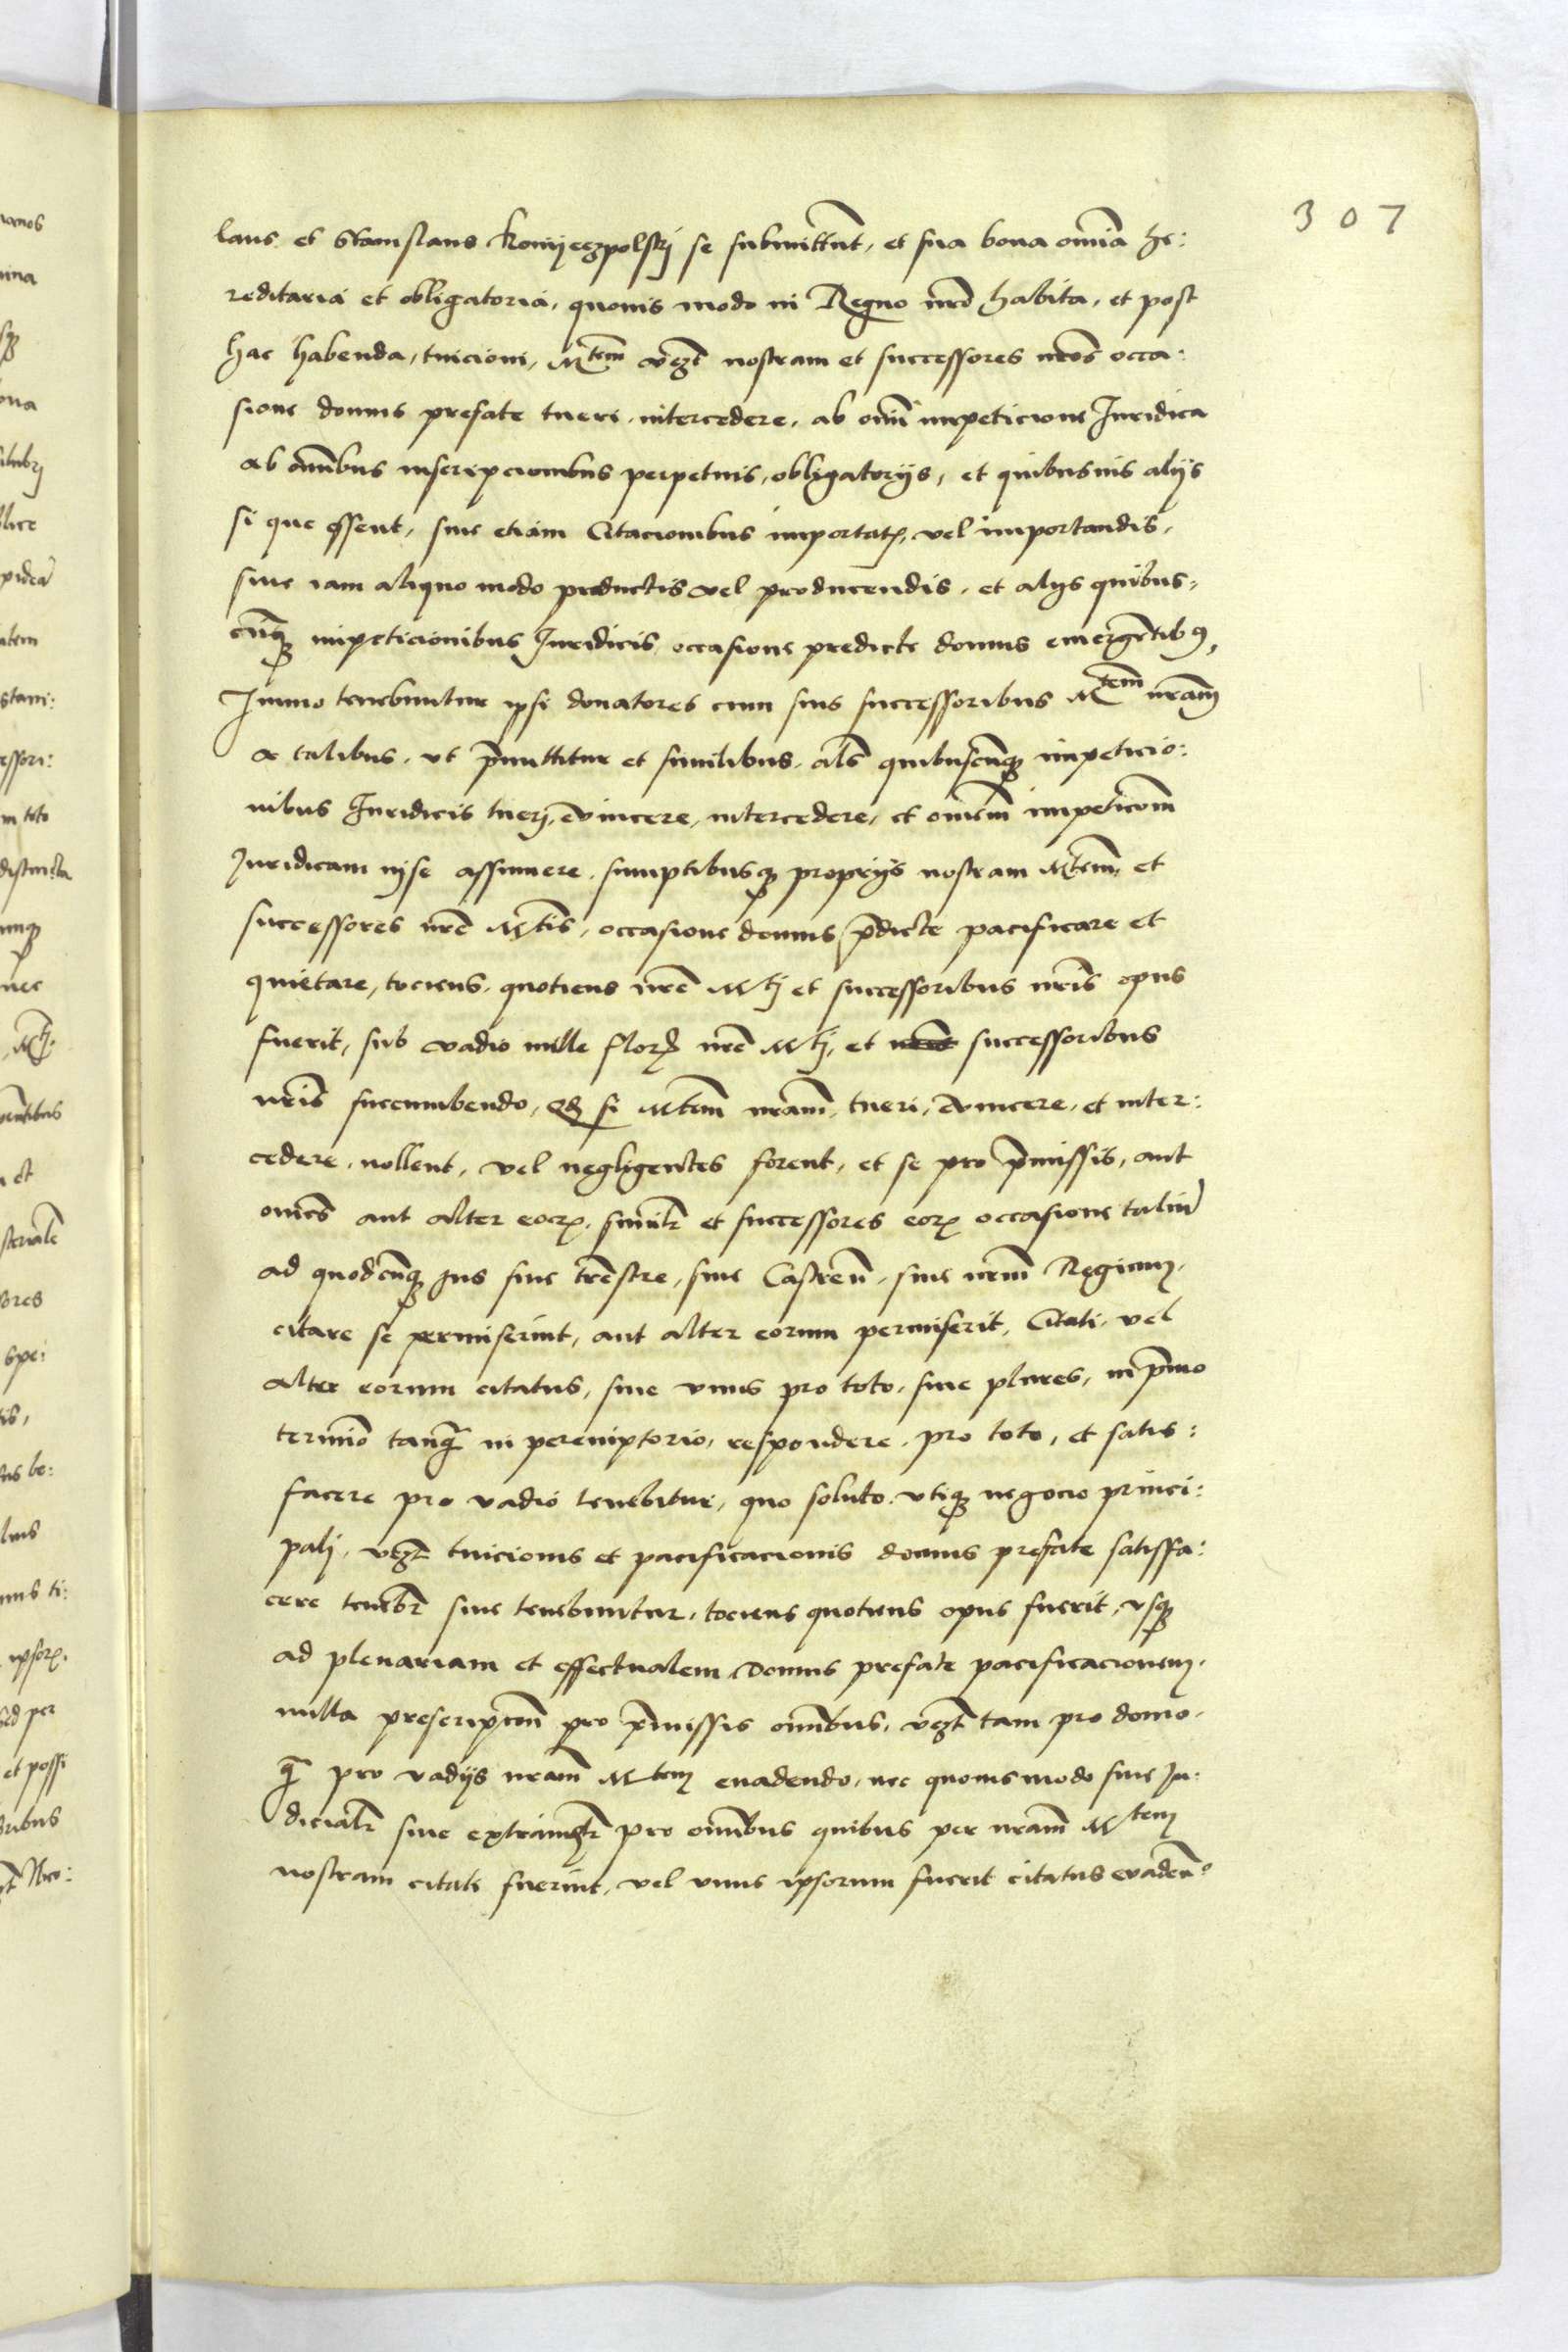 307
laus et Stanislaus Konijeczpolskj se submittunt, et sua bona omnia he:
reditaria et obligatoria, quouis modo in Regno nro habita, et post
hac habenda, tuicioni, Mtem vczt nostram et successores nros occa:
sione domus prefate tueri, intercedere, ab omni impeticione Juridica
ab omnibus inscripcionibus perpetuis, obligatorijs, et quibusuis alijs
si que essent, siue etiam Citacionibus importatis, vel importandis,
siue iam aliquo modo productis vel producendis, et alijs quibus,
cunque impeticionibus Juridicis, occasione predicte domus emergentibus,
Immo tenebuntur ipsi donatores cum suis successoribus Mtem nram
a talibus, vt premittitur et similibus, alijs quibuscunque impeticio:
nibus Juridicis tuerj, euincere, intercedere, et omnem impeticionem
Juridicam in se assumere, sumptibusque proprijs nostram Mtem, et
successores nre Mtis, occasione domus predicte pacificare et
quietare, tociens, quotiens nre Mtj et successoribus nris opus
fuerit, sub vadio mille florenorum nre Mtj, et successoribus
nris succumbendo, quod si Mtem nram, tueri, euincere, et inter:
cedere, nollent, vel negligentes forent, et se pro premissis, aut
omnes aut alter eorum, similiter et successores eorum occasione talium
ad quodcunque ius siue terrestre, siue Castrense, siue nrum Regium,
citare se permiserint, aut alter eorum permiserit, Citati, vel
alter eorum citatus, siue vnus pro toto, siue plures, in primo
termino tanquam in peremptorio, respondere, pro toto, et satis:
facere pro vadio tenebitur, quo soluto, vtique negocio princi:
palj, vczt tuicionis et pacificacionis domus prefate satisfa:
cere tenebitur siue tenebuntur, tociens quotiens opus fuerit, vsque
ad plenariam et effectualem domus prefate pacificacionem,
nulla prescripcione pro premissis omnibus, vczt tam pro domo,
quam pro vadijs nram Mtem euadendo, nec quouismodo siue Ju:
dicialiter siue extraiudicialiter pro omnibus quibus per nram Mtem
nostram citati fuerint, vel vnus ipsorum fuerit citatus evaden: